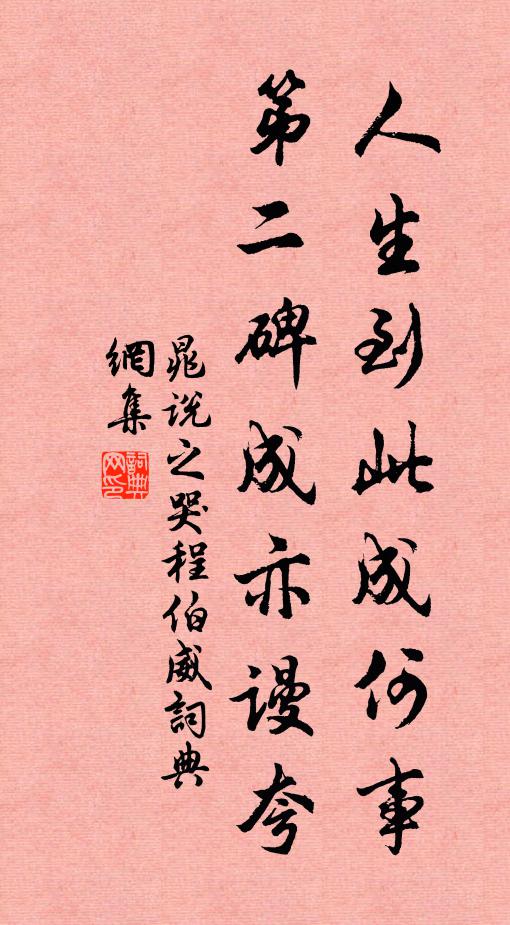 人生到此成何事
第二碑成亦謾夸
晁说之哭程伯威詞典
網集
詞典
网印